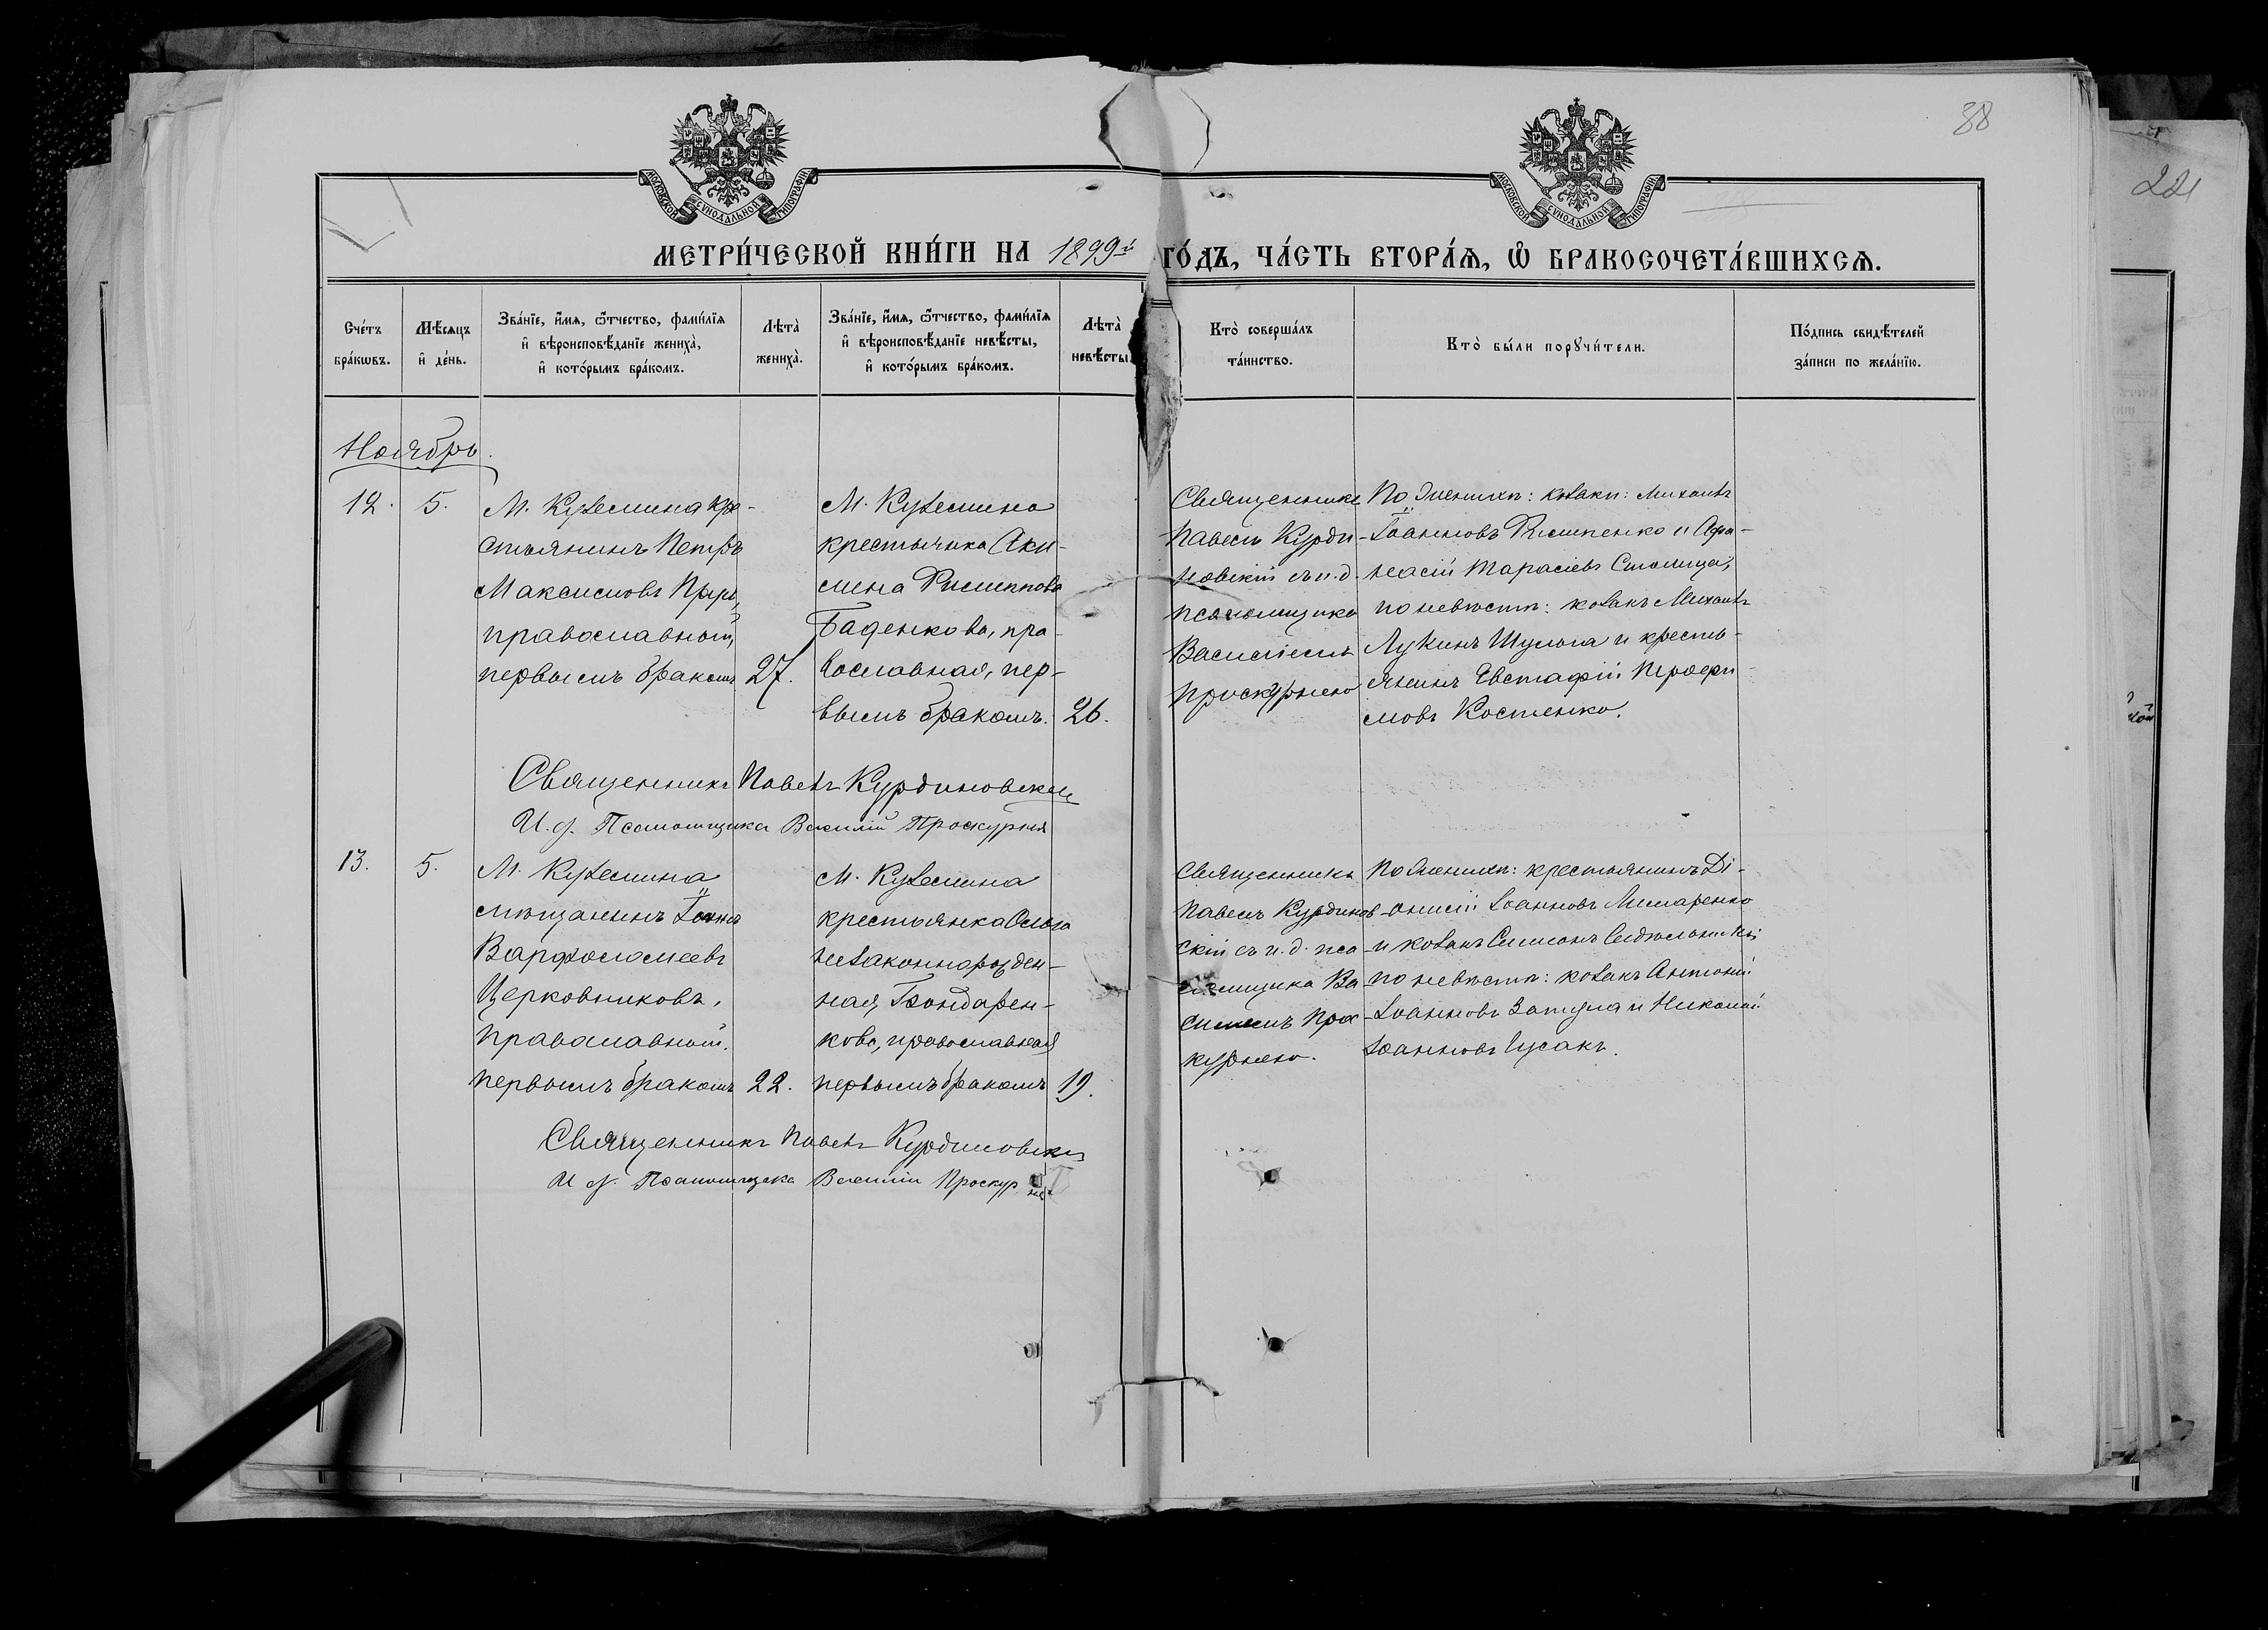 88
221
МОСКОВСКОЙ СѴНОДАЛЬНОЙ ТИПОГРАФІИ
МОСКОВСКОЙ СѴНОДАЛЬНОЙ ТИПОГРАФІИ
МЕТРИ́ЧЕСКОЙ КНИ́ГИ НА 1899й ГО́ДЪ, ЧА́СТЬ ВТОРА́Ѧ, Ѽ БРАКОСОЧЕТА́ВШИХСѦ.
Сче́тъ
бра́кѡвъ.
Мѣ́сяцъ
и҆ де́нь.
Зва́нїе, и҆́мѧ, ѻ҆́тчество, фами́лїѧ
и҆ вѣроисповѣ́данїе жениха̀,
и҆ кото́рымъ бра́комъ.
Лѣта̀
жениха̀.
Зва́нїе, и҆́мѧ, ѻ҆́тчество, фами́лїѧ
и҆ вѣроисповѣ́данїе невѣ́сты,
и҆ кото́рымъ бра́комъ.
Лѣта̀
невѣ́сты.
Кто̀ соверша́лъ
та́инство.
Кто̀ бы́ли порꙋчи́тели.
По́дпись свидѣ́телей
за́писи по жела́нїю.
Ноябрь.
12.
5.
М. Куземина кре-
стьянинъ Петръ
Максимовъ
православный,
первымъ бракомъ
27.
М. Куземина
крестьянка Аки-
лина Филиппова
Баденкова, пра-
вославная, пер-
вымъ бракомъ.
26.
Священникъ
Павелъ Курди-
новскій съ и.д.
псаломщика
Василіемъ
Проскурнею
По женихѣ: козаки: Михаилъ
Іоанновъ Филипенко и Афа-
насій Тарасіевъ Столица;
по невѣстѣ: козакъ Михаилъ
Лукинъ Шульга и кресть-
янинъ Евстафій Трофи-
мовъ Костенко.
Священникъ Павелъ Курдиновскій
И. д. Псаломщика Василій Проскурня
13.
5.
М. Куземина
мѣщанинъ Іоаннъ
Варфоломеевъ
Церковниковъ,
православный.
первымъ бракомъ
22.
М. Куземина
крестьянка Ольга
незаконнорожден-
ная Бондарен-
кова, православная
первымъ бракомъ
19.
Священникъ
Павелъ Курдинов-
скій съ и. д. пса-
ломщика Ва
силіемъ Прос-
курнею.
По женихѣ: крестьянинъ Ді-
онисій Іоанновъ Лимаренко
и козакъ Симеонъ
по невѣстѣ: козакъ Антоній
Іоанновъ Затула и Николай
Іоанновъ Гусакъ.
Священникъ Павелъ Курдиновскій
И д. Псаломщика Василій Проскурня